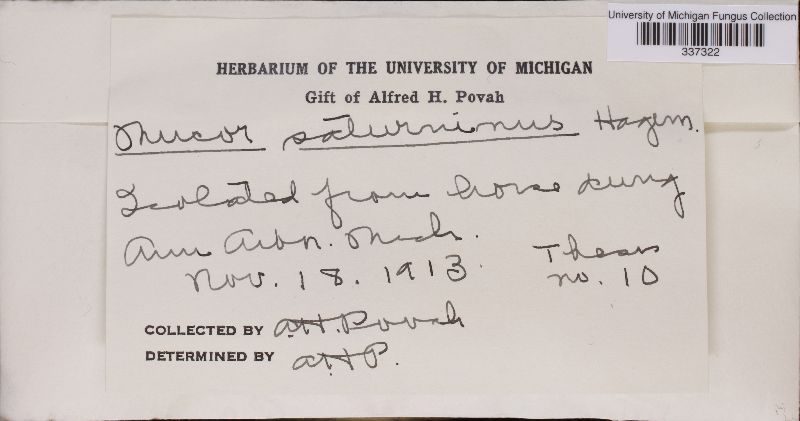 University of Michigan Fungus Collection
337322
HERBARIUM OF THE UNIVERSITY OF MICHIGAN
Gift of Alfred H. Povah
Mucor saturninus Hagem.
Isolated from horse dung
Ann Arbr. Mich.
Nov. 18. 1913. Thesis
no. 10
COLLECTED BY A.H. Povah
DETERMINED BY A.H.P.